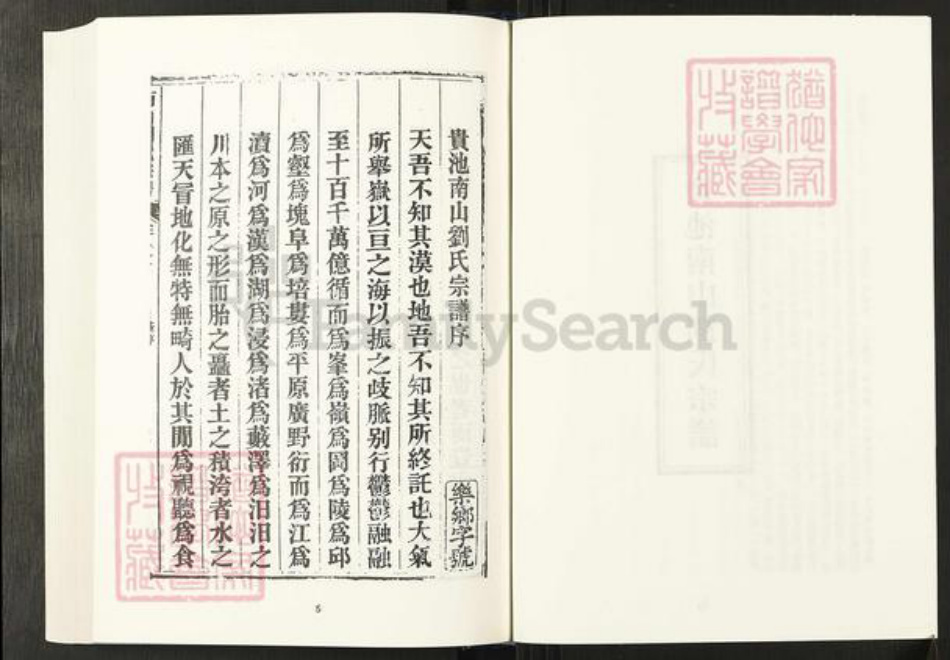 貴池南山劉氏宗譜序
樂鄉字號
天吾不知其漠也地吾不知其所終託也大氣
所舉嶽以亘之海以振之歧脈别行鬱鬱融融
至十百千萬億循而爲峯爲嶺爲岡爲陵爲邱
爲壑爲塊阜爲培塿爲平原廣野衍而爲江爲
瀆爲河爲漢爲湖爲浸爲渚爲藪澤爲汨汨之
川本之原之形而胎之矗者土之積洿者水之
匯天冒地化無特無畸人於其閒爲視聽爲食
5
FamilySearch
猶他家譜學會收藏